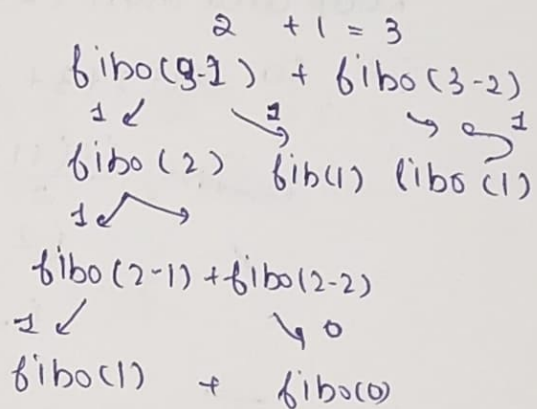 2 + 1 = 3
fibo(3-1) + fibo(3-2)
1 1 1
fibo(2) fib(1) fibo(1)
1
fibo(2-1) + fibo(2-2)
1 0
fibo(1) + fibo(0)